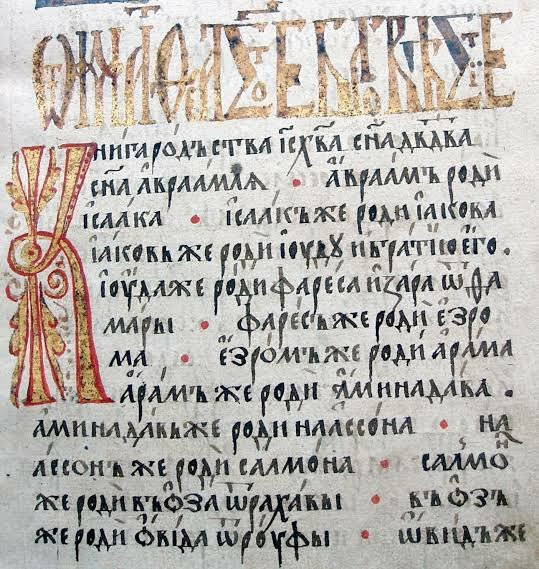 Ѿ маѳеа ст҃ое бл҃говѣстїе
Книга родъства іс҃ х҃ва сн҃а дв҃два
сн҃а авраамлѧ • авраамъ роди
ісаака • ісаакъ же роди іакова
іаковъ же роди іоудꙋ и братїю его.
іоуда же роди фареса и зара ѿ ѳа
мары • фаресъ же роди езро
ма • езромъ же роди арама
арамъ же роди аминадава.
аминадавъ же роди наассона • на
ассонъ же роди салмона • салмоⷩ
же роди въоза ѿ рахавы • въозъ
же роди овіда ѿ роуфы • ѡвидъ же